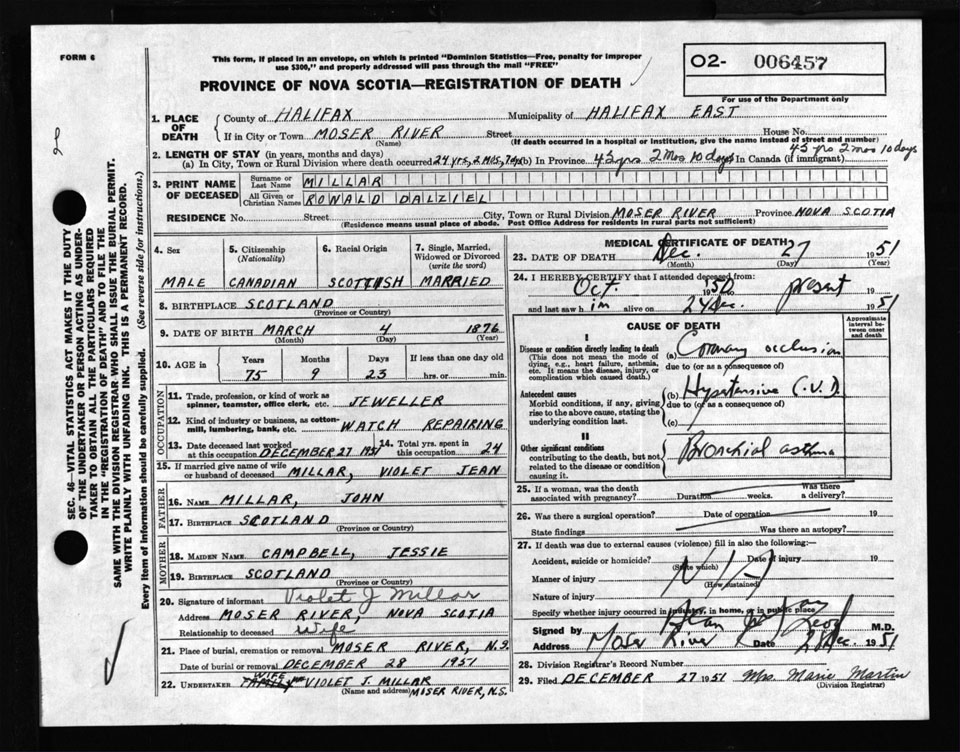 FORM 6
This form, if placed in an envelope, on which is printed "Dominion Statistics—Free, penalty for improper
use $300," and properly addressed will pass through the mail "FREE"
PROVINCE OF NOVA SCOTIA—REGISTRATION OF DEATH
02- 006457
For use of the Department only
1. PLACE OF DEATH
County of HALIFAX Municipality of HALIFAX EAST
If in City or Town MOSER RIVER Street House No.
(Name) (If death occurred in a hospital or institution, give the name instead of street and number)
2. LENGTH OF STAY (in years, months and days)
(a) In City, Town or Rural Division where death occurred 24 yrs, 2 mos, (b) In Province 45 yrs 2 mos 10 days In Canada (if immigrant) 45 yrs 2 mos 10 days
3. PRINT NAME OF DECEASED
Surname or Last Name MILLAR
All Given or Christian Names RONALD DALZIEL
RESIDENCE No. Street City, Town or Rural Division MOSER RIVER Province NOVA SCOTIA
(Residence means usual place of abode. Post Office Address for residents in rural parts not sufficient)
4. Sex MALE
5. Citizenship (Nationality) CANADIAN
6. Racial Origin SCOTTISH
7. Single, Married, Widowed or Divorced (write the word) MARRIED
8. BIRTHPLACE SCOTLAND
(Province or Country)
9. DATE OF BIRTH MARCH 4 1876
(Month) (Day) (Year)
10. AGE in Years Months Days If less than one day old
75 9 23 hrs. or min.
OCCUPATION
11. Trade, profession or kind of work as
spinner, teamster, office clerk, etc. JEWELLER
12. Kind of industry or business, as cotton-
mill, lumbering, bank, etc. WATCH REPAIRING
13. Date deceased last worked
at this occupation DECEMBER 27 1951
14. Total yrs. spent in
this occupation 24
15. If married give name of wife
or husband of deceased MILLAR, VIOLET JEAN
FATHER
16. NAME MILLAR, JOHN
17. BIRTHPLACE SCOTLAND
(Province or Country)
MOTHER
18. MAIDEN NAME CAMPBELL, JESSIE
19. BIRTHPLACE SCOTLAND
(Province or Country)
20. Signature of informant Violet J Millar
Address MOSER RIVER, NOVA SCOTIA
Relationship to deceased Wife
21. Place of burial, cremation or removal MOSER RIVER, N.S.
Date of burial or removal DECEMBER 28 1951
22. UNDERTAKER WIFE VIOLET J. MILLAR
(Name and address) MISER RIVER, N.S.
MEDICAL CERTIFICATE OF DEATH
23. DATE OF DEATH Dec. 27 1951
(Month) (Day) (Year)
24. I HEREBY CERTIFY that I attended deceased from
Oct. 1950 present 1951
and last saw him alive on 24 Dec. 1951
CAUSE OF DEATH
Approximate interval between onset and death
I
Disease or condition directly leading to death
(This does not mean the mode of
dying, e.g., heart failure, asthenia,
etc. It means the disease, injury, or
complication which caused death.)
(a) Coronary occlusion
due to (or as a consequence of)
Antecedent causes
Morbid conditions, if any, giving
rise to the above cause, stating the
underlying condition last.
(b) Hypertensive C.V.D.
due to (or as a consequence of)
(c)
II
Other significant conditions
contributing to the death, but not
related to the disease or condition
causing it.
Bronchial asthma
25. If a woman, was the death Was there
associated with pregnancy? Duration weeks. a delivery?
26. Was there a surgical operation? Date of operation 19
State findings Was there an autopsy?
27. If death was due to external causes (violence) fill in also the following:—
Accident, suicide or homicide? Date of injury 19
(State which)
Manner of injury N/A
(How sustained)
Nature of injury
Specify whether injury occurred in industry, in home, or in public place
Signed by M.D.
Address Moser River Date Dec. 1951
28. Division Registrar's Record Number
29. Filed DECEMBER 27 1951 Mrs. Marie Martin
(Division Registrar)
SEC. 46—VITAL STATISTICS ACT MAKES IT THE DUTY
OF THE UNDERTAKER OR PERSON ACTING AS UNDER-
TAKER TO OBTAIN ALL THE PARTICULARS REQUIRED
IN THE "REGISTRATION OF DEATH" AND TO FILE THE
SAME WITH THE DIVISION REGISTRAR WHO SHALL ISSUE THE BURIAL PERMIT.
WRITE PLAINLY WITH UNFADING INK. THIS IS A PERMANENT RECORD.
Every item of information should be carefully supplied. (See reverse side for instructions.)